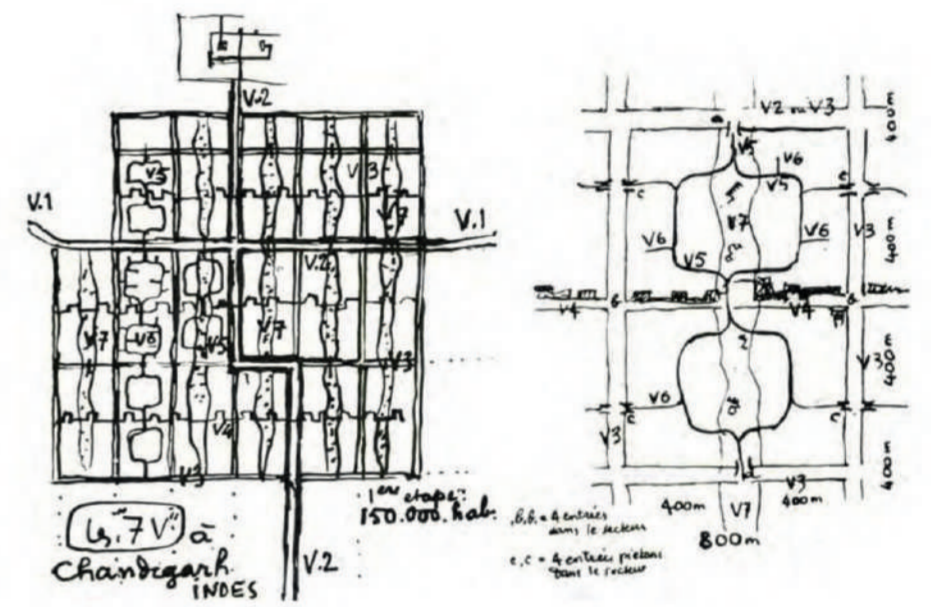 V.2
V5
V3
V7
V.1
V.1
V.2
V7
V8
V5
V7
V3
V4
V3
1ère etape:
150.000.hab.
les "7V" à
Chandigarh
INDES
V.2
V2 ou V3
400m
V5
V6
V5
c
c
V7
V6
V6
V3
400m
V5
V4
V4
400m
V3
V6
c
c
V3
400m
V3
400m
V7
400m
800m
= 4 entrées
dans le secteur
c,c = 4 entrées piétons
dans le secteur